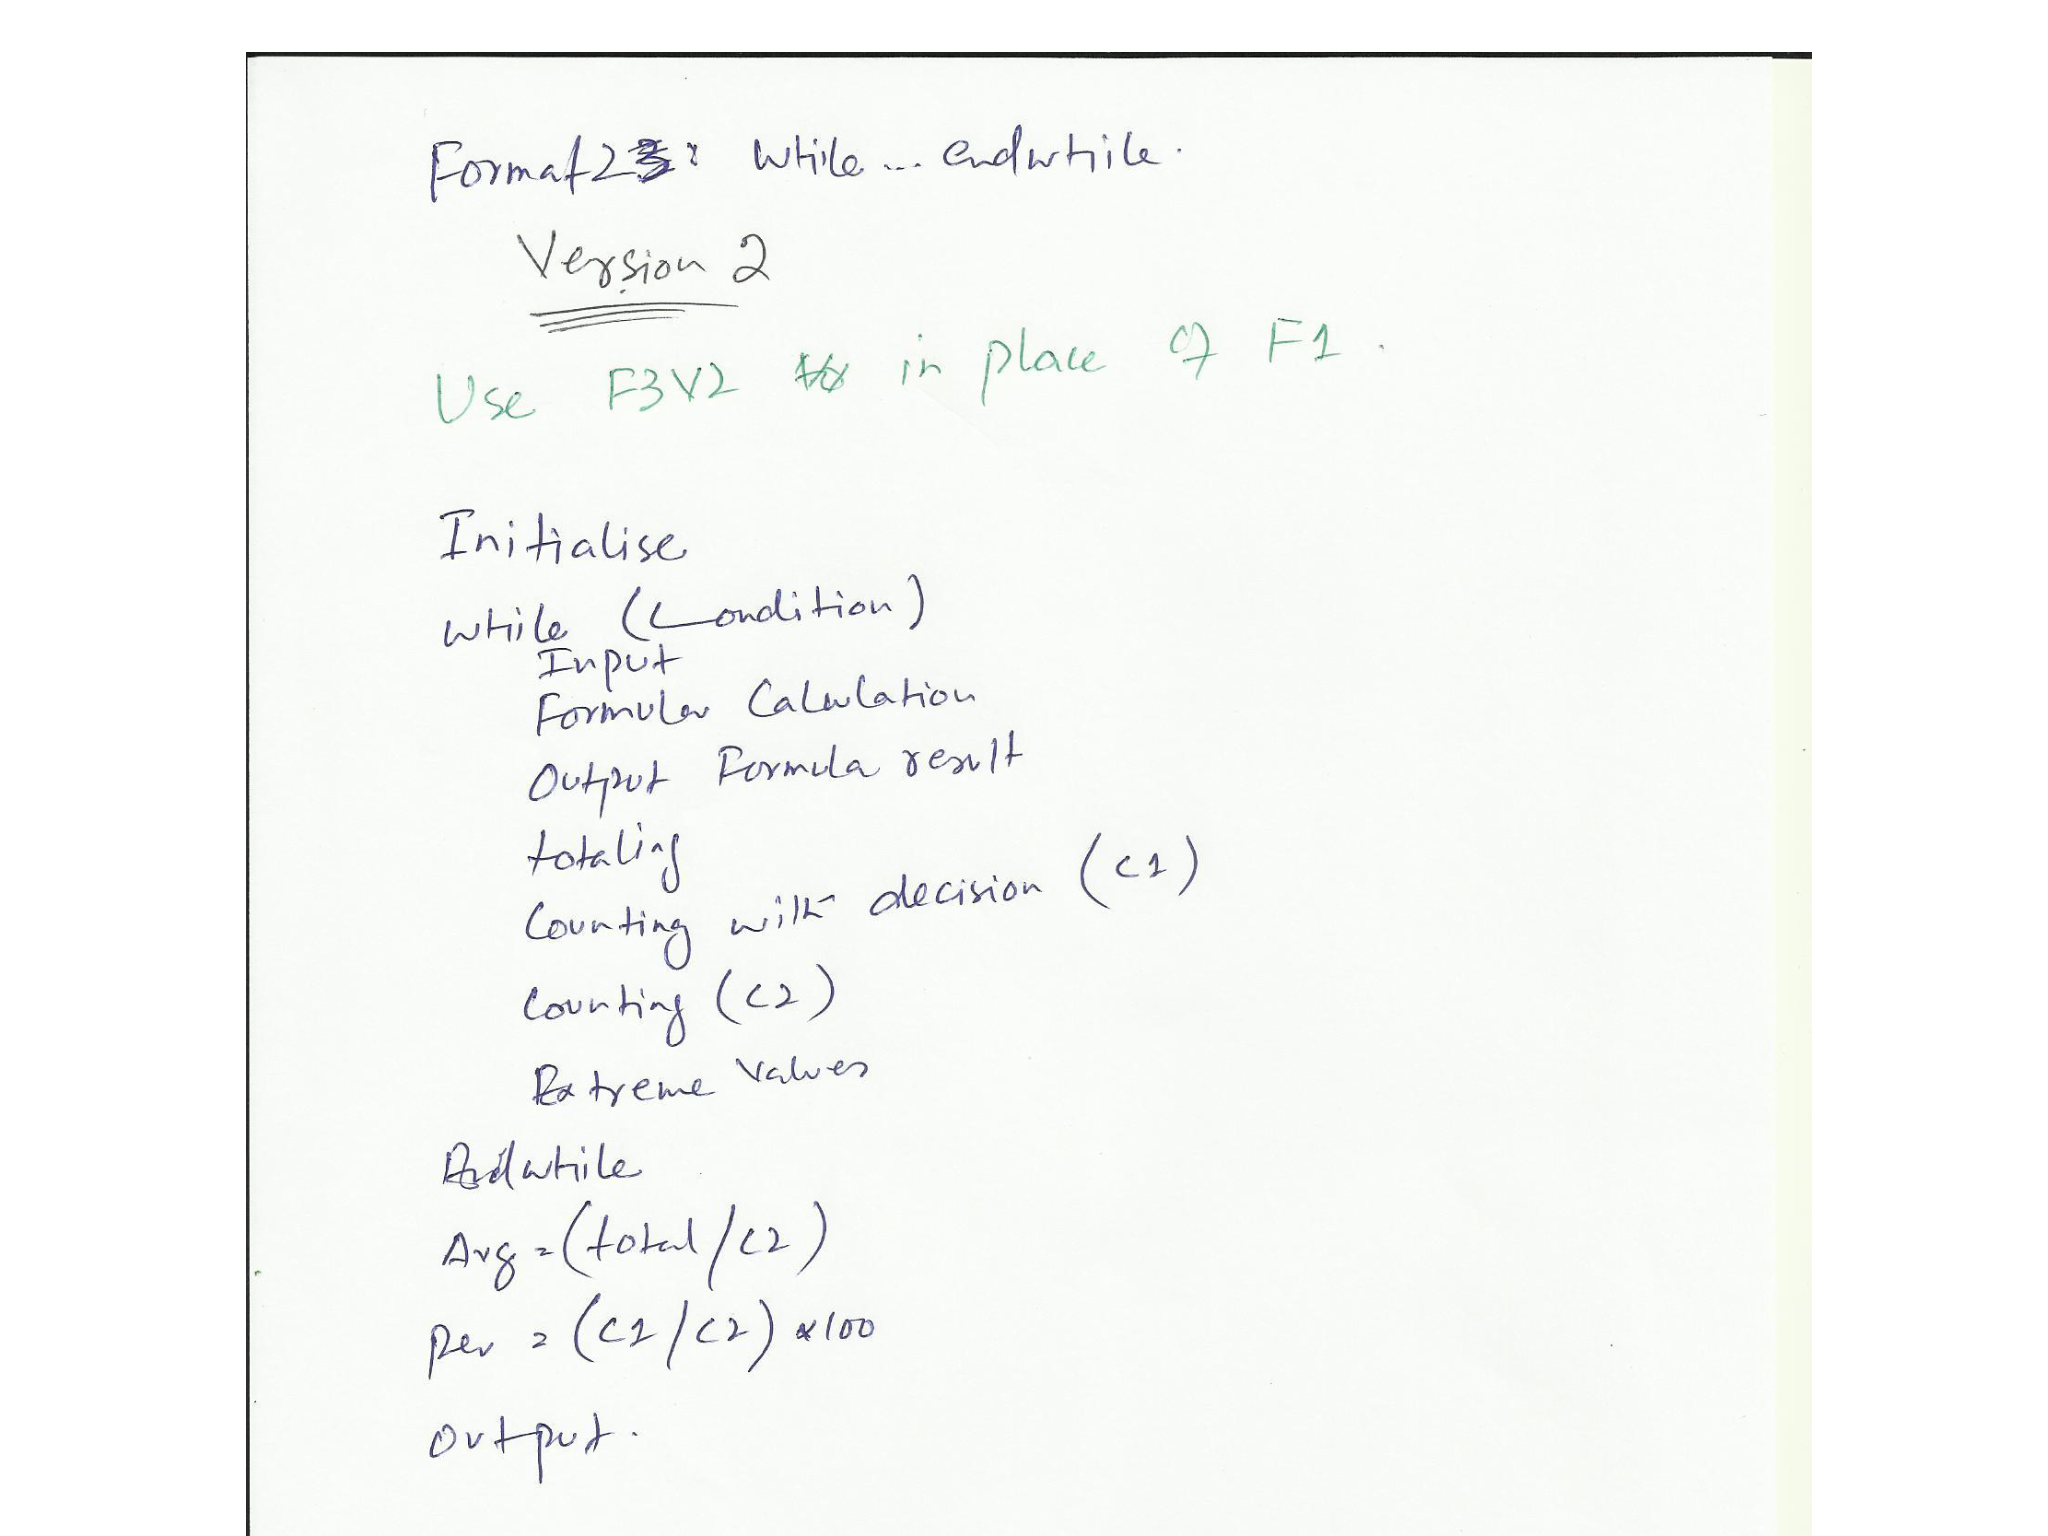 Format 3: while ... endwhile.
Version 2
Use F3V2 in place of F1.
Initialise
while (Condition)
Input
Formula Calculation
Output Formula result
totaling
Counting with decision (c1)
Counting (c2)
Extreme Values
Endwhile
Avg = (total/c2)
Per = (c1/c2) * 100
output.